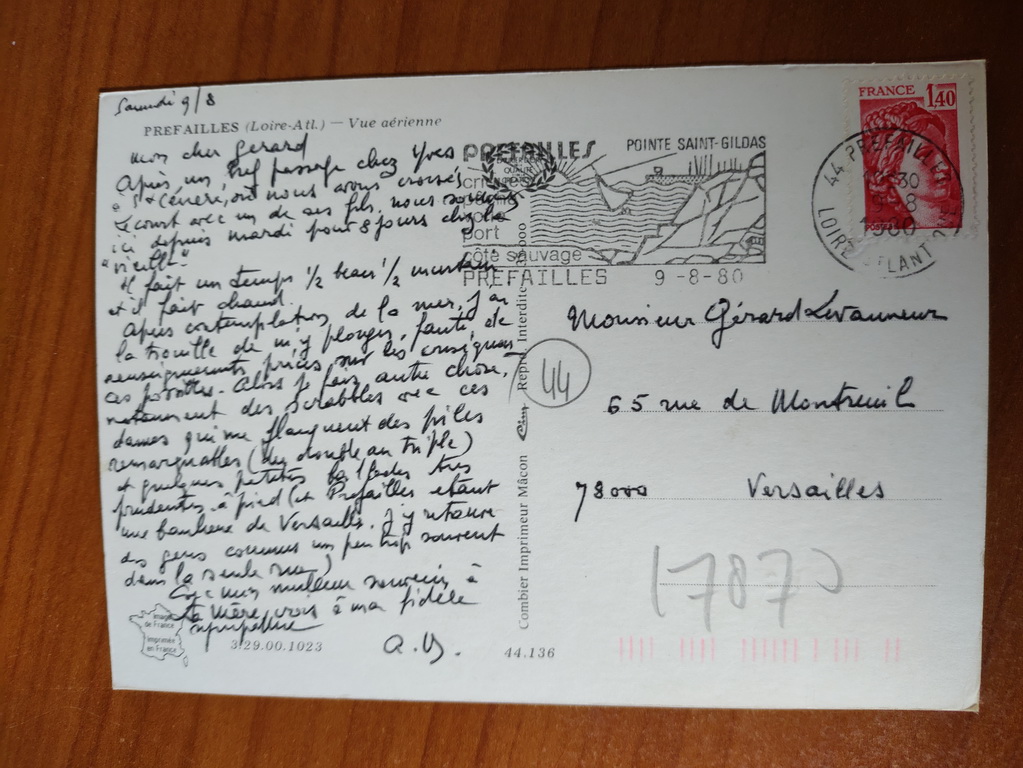 Samedi 9/8
PREFAILLES (Loire-Atl.) — Vue aérienne
mon cher Gérard
Après un bref passage chez Yves
à St Céneré, où nous avons croisé
Lecourt avec un de ses fils, nous sommes
ici depuis mardi pour 8 jours chez la
"vieille"
Il fait un temps ½ beau ½
et il fait chaud.
Après contemplation de la mer, j'ai
la trouille de m'y plonger, faute de
renseignements précis sur les
ces. Alors je fais autre chose,
notamment des scrabbles avec ces
dames qui me flanquent des piles
remarquables (du double au triple)
et quelques petites balades très
prudentes, à pied (et Prefailles étant
une banlieue de Versailles, j'y retrouve
des gens connus un peu trop souvent
dans la seule rue)
mes meilleurs souvenirs à
ta mère, vous à ma fidèle
sympathie
a.
Images
de France
Imprimée
en France
3.29.00.1023
44.136
Combier Imprimeur Mâcon Cim Repro. Interdite
44
PREFAILLES POINTE SAINT-GILDAS
port
côte sauvage
PREFAILLES 9-8-80
FRANCE 1,40
POSTES
44 PREFAILLES
LOIRE ATLANTIQUE
Monsieur Gérard Levanneur
65 rue de Montreuil
78000 Versailles
17870